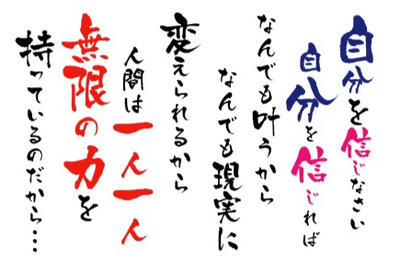 自分を信じなさい
自分を信じれば
なんでも叶うから
なんでも現実に
変えられるから
人間は一人一人
無限の力を
持っているのだから・・・